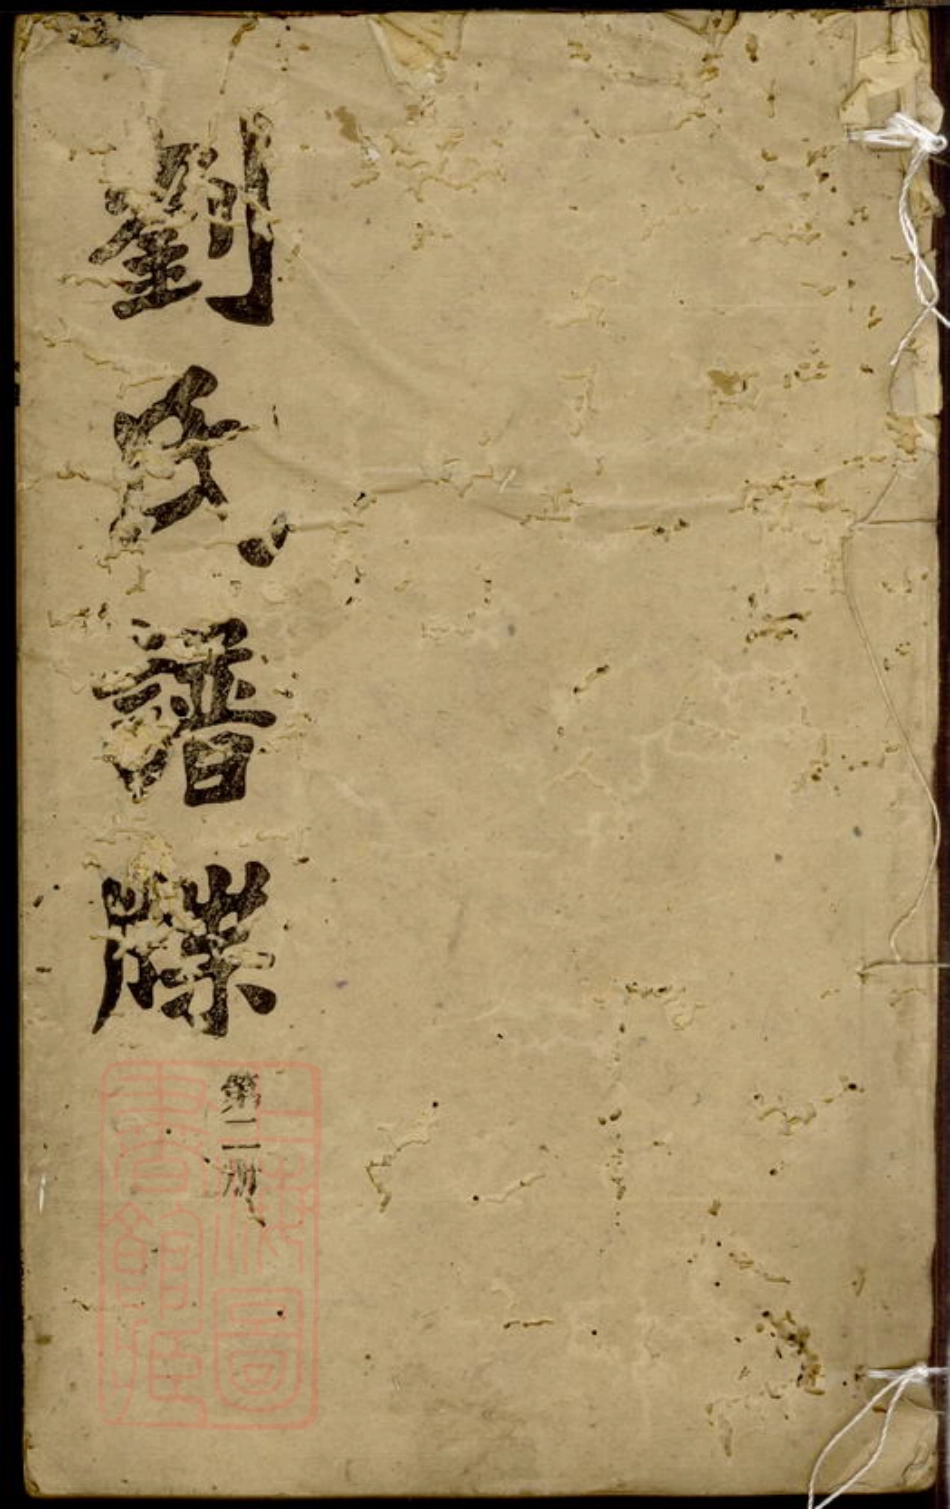 劉氏譜牒
第二册
上海圖
書館藏